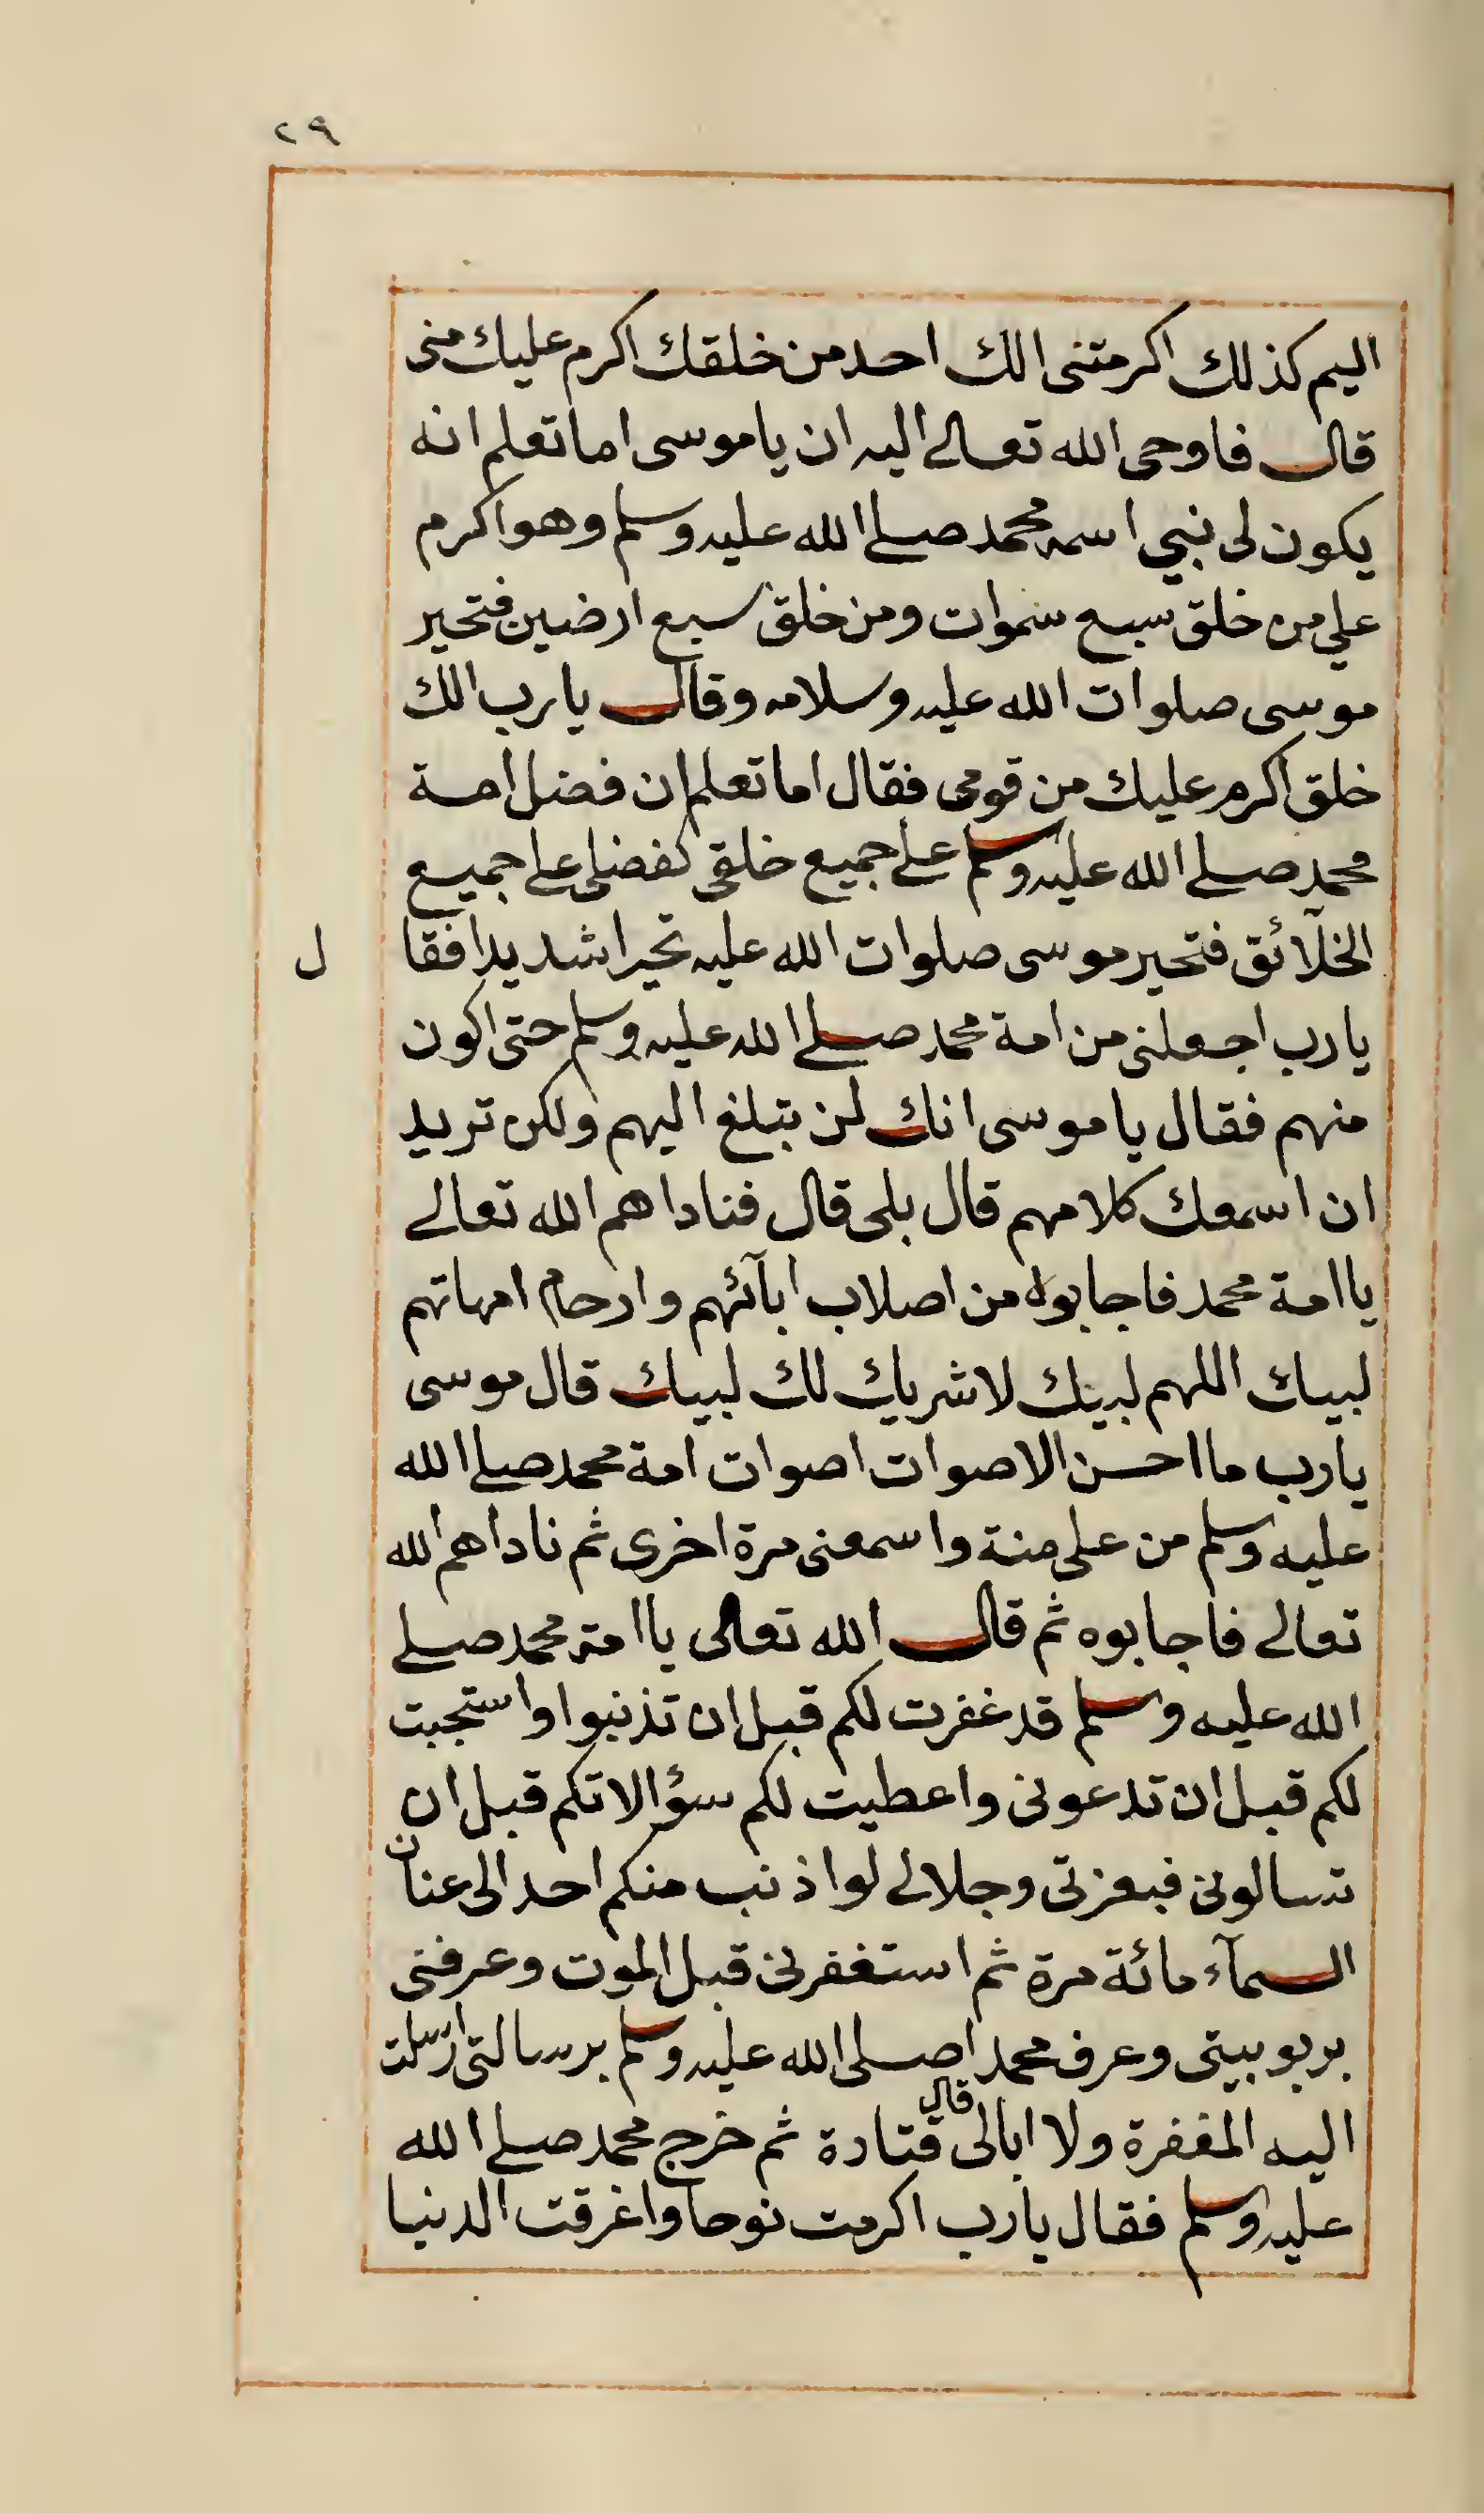 ٢٩
اليم كذلك اكرمتنى الك احد من خلقك اكرم عليك منى
قال فاوحى الله تعالے اليه ان ياموسى اما تعلم انه
يكون لى نبي اسمه محمد صلے الله عليه وسلم وهو اكرم
علي من خلق سبع سموات ومن خلق سبع ارضين فتحير
موسى صلوات الله عليه وسلامه وقال يارب الك
خلق اكرم عليك من قومى فقال اما تعلم ان فضل امة
محمد صلے الله عليه وسلم علے جميع خلقى كفضلى على جميع
الخلآئق فتحير موسى صلوات الله عليه تحيرا شديدا فقا ل
يارب اجعلنى من امة محمد صلے الله عليه وسلم حتى اكون
منهم فقال ياموسى انك لن تبلغ اليهم ولكن تريد
ان اسمعك كلامهم قال بلى قال فناداهم الله تعالے
ياامة محمد فاجابوه من اصلاب ابآئهم وارحام امهاتهم
لبيك اللهم لبيك لاشريك لك لبيك قال موسى
يارب مااحسن الاصوات اصوات امة محمد صلے الله
عليه وسلم من على منة واسمعنى مرة اخرى ثم ناداهم الله
تعالے فاجابوه ثم قال الله تعالى ياامة محمد صلے
الله عليه وسلم قد غفرت لكم قبل ان تذنبوا واستجبت
لكم قبل ان تدعونى واعطيت لكم سؤالاتكم قبل ان
تسالونى فبعزتى وجلالے لواذنب منكم احد الى عنان
السمآء مائة مرة ثم استغفرنى قبل الموت وعرفنى
بربوبيتى وعرف محمدا صلى الله عليه وسلم برسالتى ارسلت
اليه المغفرة ولا ابالى قال قتادة ثم خرج محمد صلے الله
عليه وسلم فقال يارب اكرمت نوحا واغرقت الدنيا